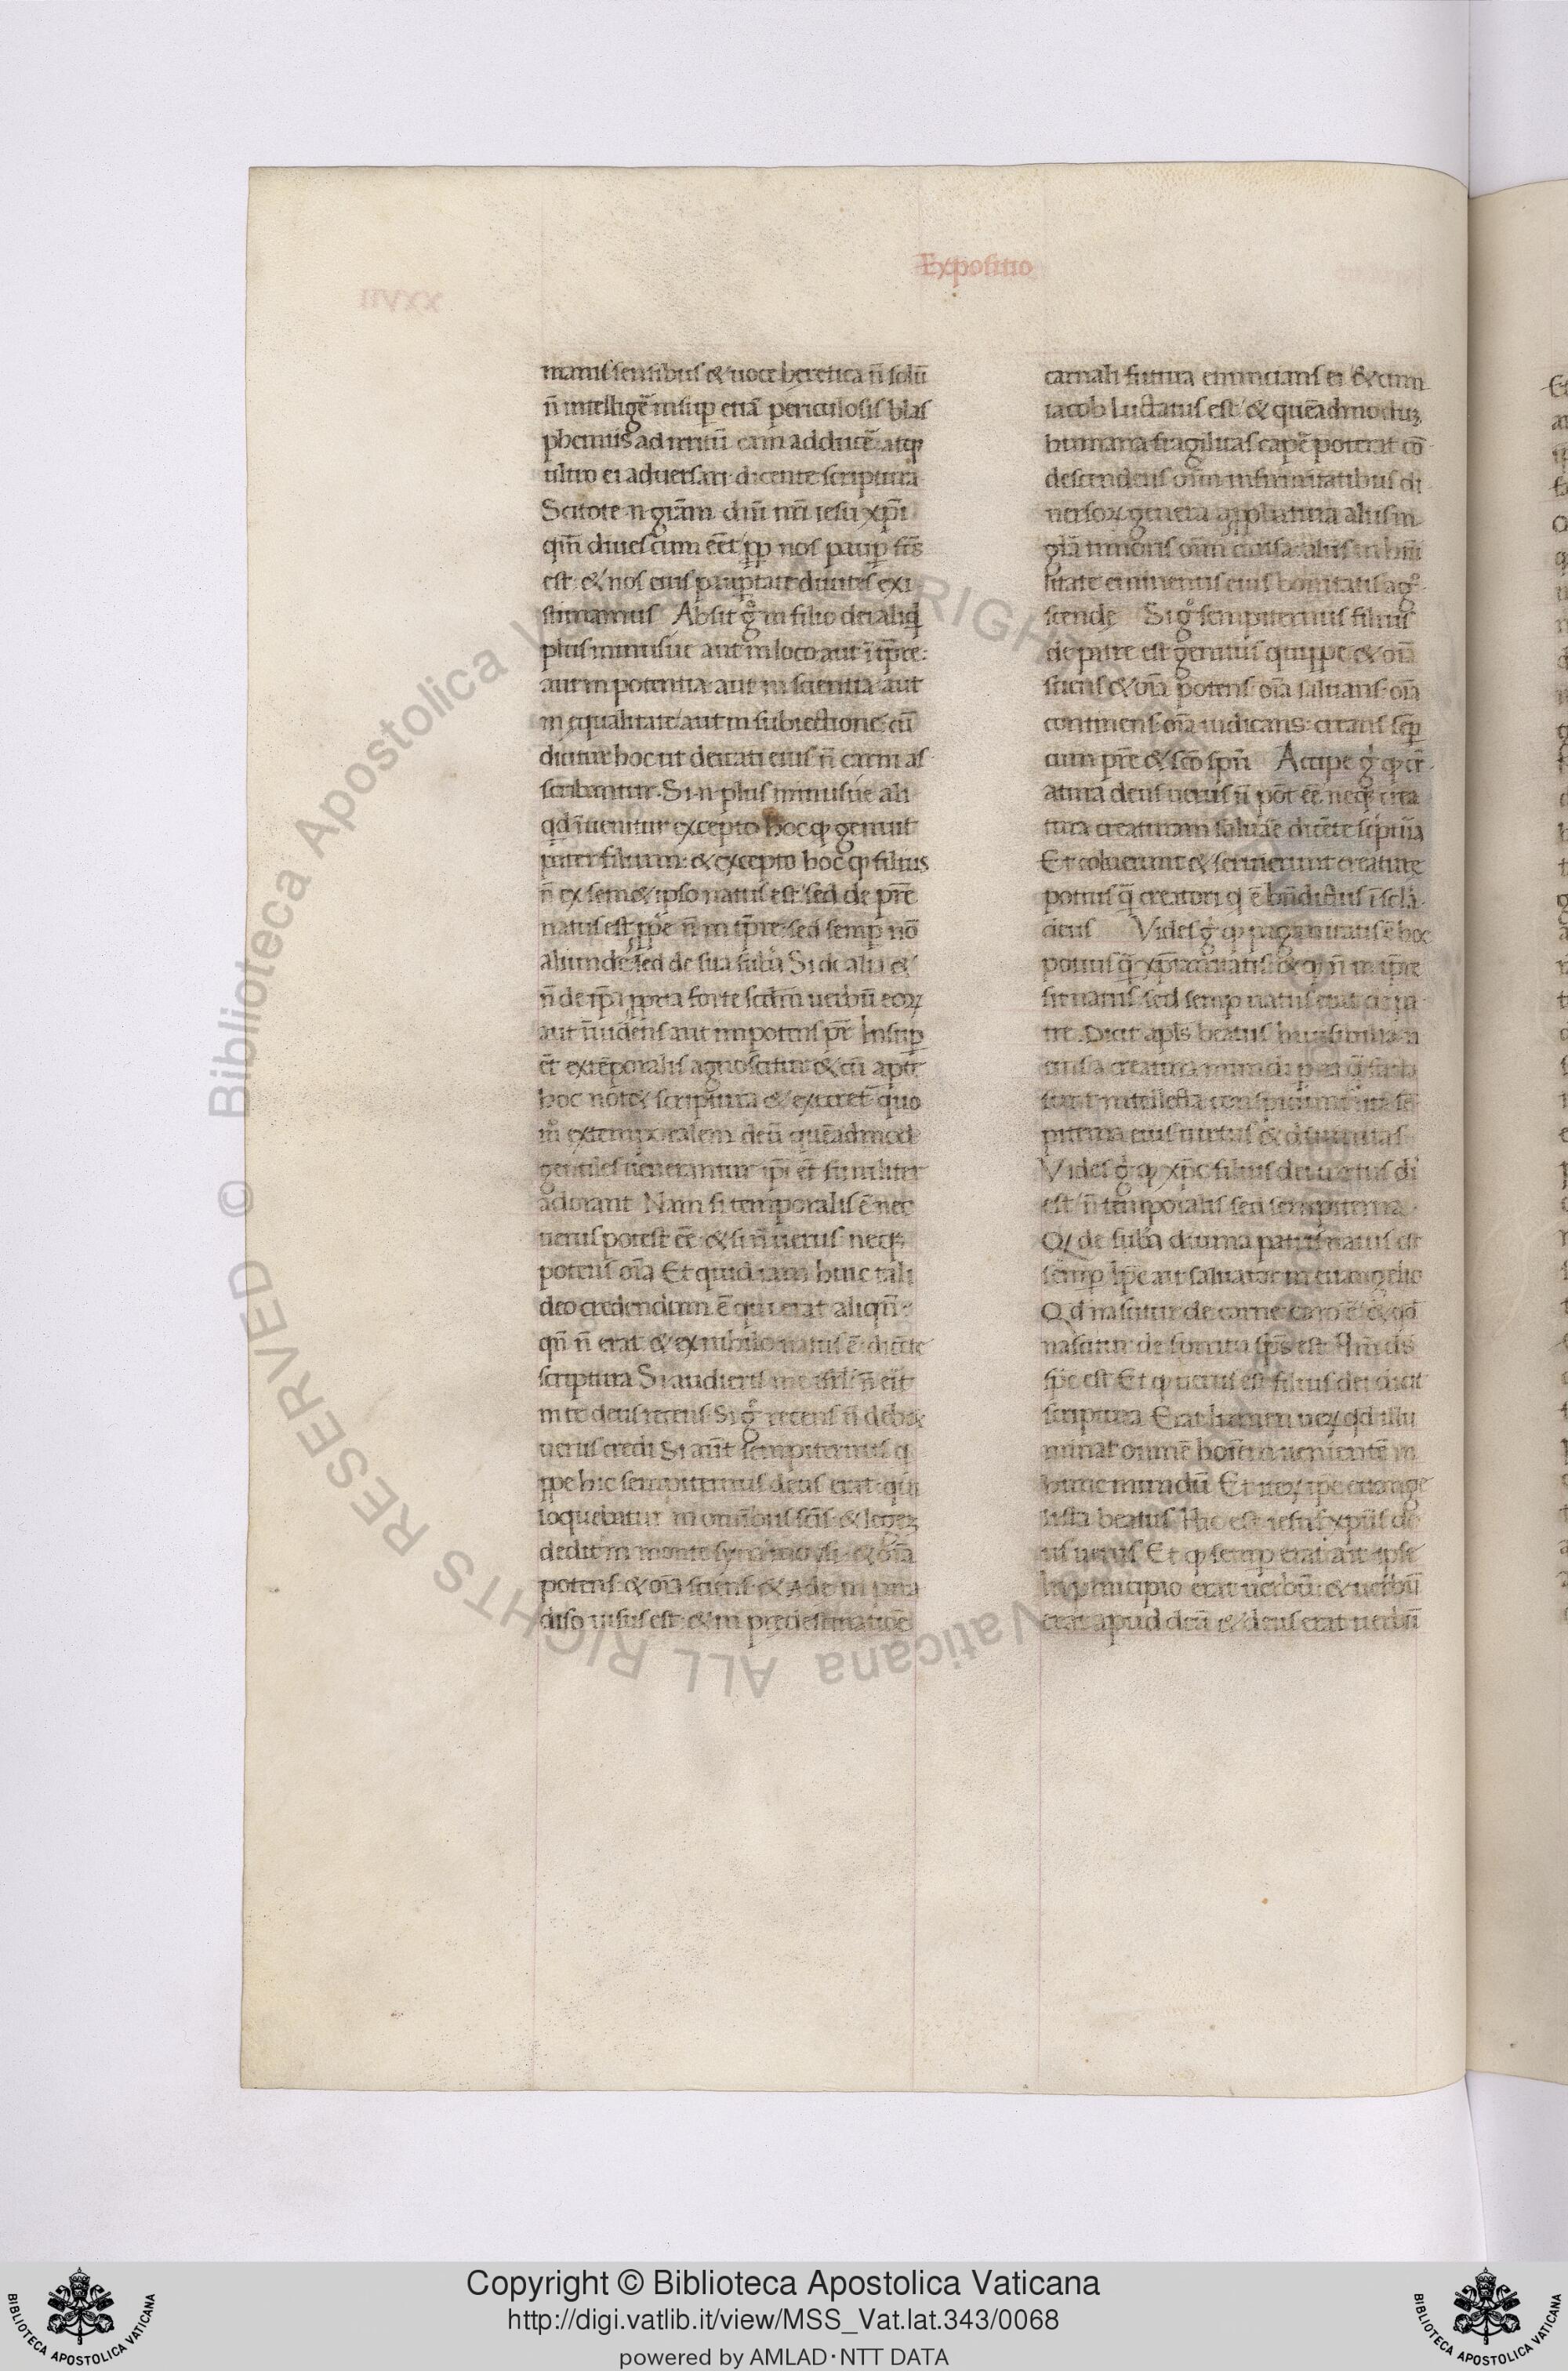 Expositio
manis sensibus & uoce heretica n̄ solū
n̄ intelligē insup etiā periculosis blas
phemiis ad iniuriā eam adducē atq;
ultro ei aduersari dicente scriptura
Scitote n̄ grām dn̄i nr̄i iesu xp̄i
qm̄ diues cum eēt ꝓp nos paup fc̄s
est & nos eius pauptate diuites exi
stimamus Absit gͦ in filio dei aliqd
plus minusue aut in loco aut ī tp̄re:
aut in potentia aut in scientia aut
in equalitate aut in subiectione cū
dicitur hoc ut deitati eius n̄ carni as
scribantur. Si n̄ plus minusue ali
qd īuenitur excepto hoc ꝙ genuit
pater filium: & excepto hoc ꝙ filius
n̄ ex semet ipso natus est sed de pr̄e
natus est n̄ in tp̄re sed semp nō
aliunde sed de sua sub̄a Si de alia &
n̄ de ip̄a ꝓpria forte scdm̄ uerbū eoꝝ
aut īuidens aut impotens pr̄ Insup
et̄ extēporalis agnoscitur & cū apte
hoc notet scriptura & execret quo
extemporalem deū quēadmod
gentiles uenerantur ip̄i et̄ similiter
adorant Nam si temporalis ē nec
uerus potest eē & si n̄ uerus neq;
potens oīa Et quid iam huic tali
deo credendum ē qui erat aliqn̄
qn̄ n̄ erat & ex nihilo natus ē dicēte
scriptura Si audieris me isrl n̄ erit
in te deus recens Si gͦ recens n̄ debet
uerus credi Si aut̄ sempiternus q
ꝓpe hic sempiternus deus erat qui
loquebatur in omnibus scīs & legez
dedit in monte syna moysi & oīa
potens & oīa sciens & ade in para
diso uisus est & in predestinatiōe
carnali futura enuncians ei & cum
iacob luctatus est & quēadmoduz
humana fragilitas capē poterat cō
descendens om̄i infirmitatibus di
uersoꝝ genera
stende Si gͦ sempiternus filius
de patre est genitus quippe & oīa
sciens & oīa potens oīa saluans oīa
continens oīa iudicans creans semp
cum pr̄e & sc̄o spū Accipe gͦ ꝙ cr̄
atura deus uerus n̄ pōt eē neq; crea
tura creaturam saluare dicēte scriptura
Et coluerunt & seruierunt creature
potius q̄ creatori q ē bn̄dictus ī scl̄a
deus Vides gͦ ꝙ paganitatis ē hoc
potius q̄ xp̄ianitatis & ꝙ n̄ in tp̄re
sit natus sed semp natus erat ex pa
tre. Dicit apl̄s beatus inuisibilia n̄
eius a creatura mundi p ea q̄ facta
sunt intellecta conspiciuntur sē
piterna eius uirtus & diuinitas
Vides gͦ ꝙ xp̄c filius dei uirtus di
est n̄ temporalis sed sempiterna
Q de sub̄a diuina patris natus est
semp ip̄e ait saluator in euangelio
Qd nascitur de carne caro ē & qd
nascitur de spiritu sp̄s est qm̄ ds̄
sp̄c est Et ꝙ uerus est filius dei dicit
scriptura Erat lumen ueꝝ qd illu
minat omnē hoīem uenientē in
hunc mundū Et ueꝝ ip̄e euange
lista beatus Hic est iesus xp̄us de
us uerus Et ꝙ semp erat ait ipse
In principio erat uerbū & uerbū
erat apud deū & deus erat uerbū
© Biblioteca Apostolica Vaticana ALL RIGHTS RESERVED
Copyright © Biblioteca Apostolica Vaticana
http://digi.vatlib.it/view/MSS_Vat.lat.343/0068
powered by AMLAD·NTT DATA
BIBLIOTECA APOSTOLICA VATICANA
BIBLIOTECA APOSTOLICA VATICANA